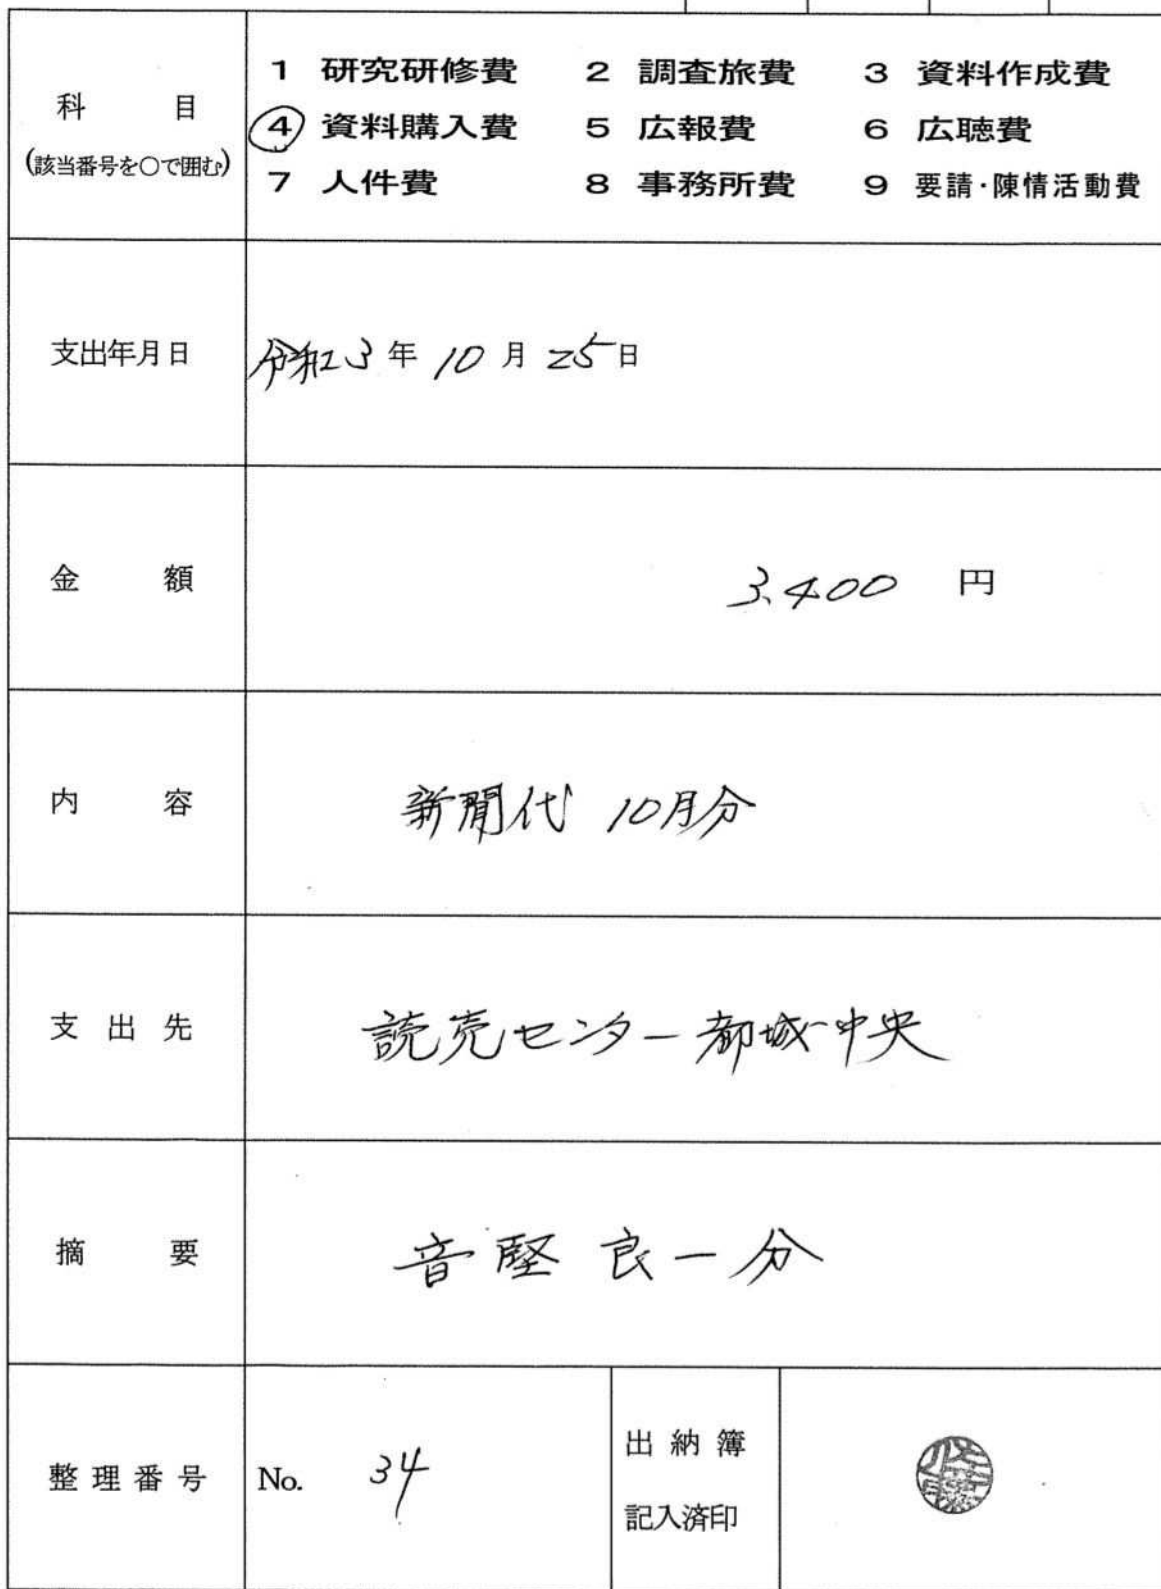 科 目
(該当番号を○で囲む)
1 研究研修費 2 調査旅費 3 資料作成費
4 資料購入費 5 広報費 6 広聴費
7 人件費 8 事務所費 9 要請・陳情活動費
支出年月日 令和3年10月25日
金 額 3,400 円
内 容 新聞代 10月分
支 出 先 読売センター都城中央
摘 要 音堅 良一分
整 理 番 号 No. 34
出 納 簿
記入済印